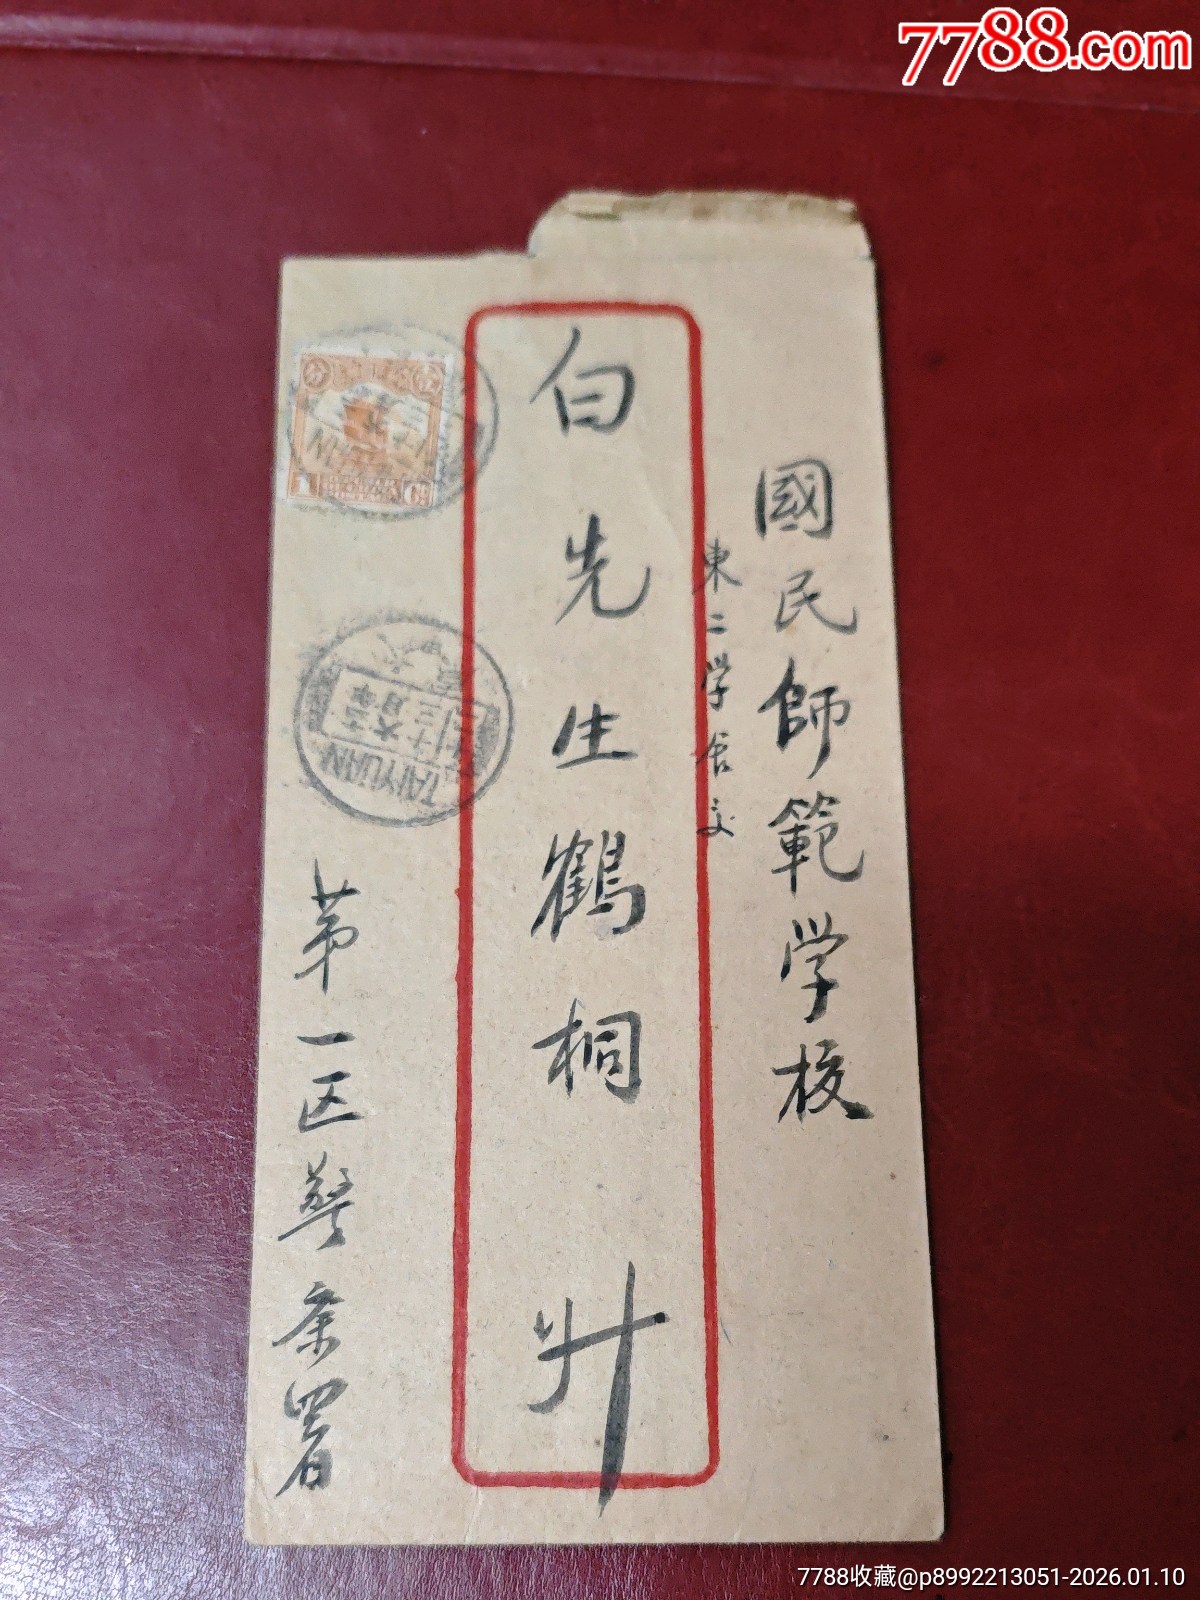 7788.com
國民師範学校
東二学舍交
白先生鶴桐 升
第一区警察署
TAIYUAN
1
7788收藏@p8992213051-2026.01.10